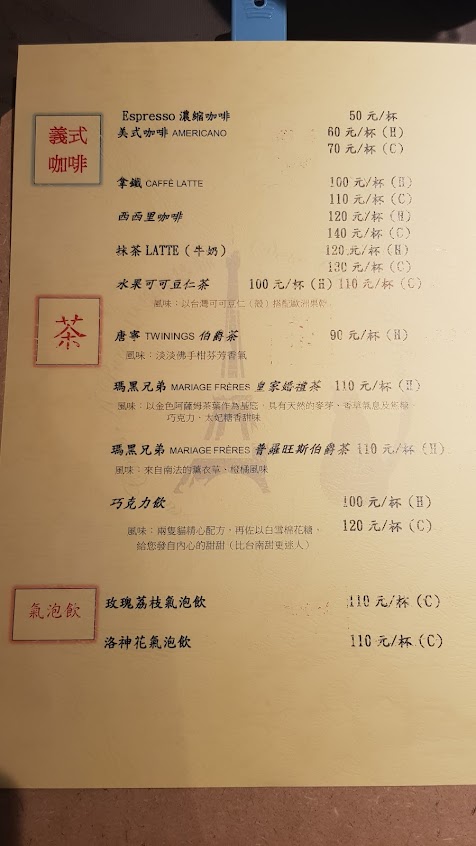 義式
咖啡
Espresso 濃縮咖啡 50 元/杯
美式咖啡 AMERICANO 60 元/杯 (H)
70 元/杯 (C)
拿鐵 CAFFÈ LATTE 100 元/杯 (H)
110 元/杯 (C)
西西里咖啡 120 元/杯 (H)
140 元/杯 (C)
抹茶 LATTE (牛奶) 120 元/杯 (H)
130 元/杯 (C)
水果可可豆仁茶 100 元/杯 (H) 110 元/杯 (C)
風味:以台灣可可豆仁(殼)搭配歐洲果乾
茶
唐寧 TWININGS 伯爵茶 90 元/杯 (H)
風味:淡淡佛手柑芬芳香氣
瑪黑兄弟 MARIAGE FRÈRES 皇家婚禮茶 110 元/杯 (H)
風味:以金色阿薩姆茶葉作為基底,具有天然的麥芽、香草氣息及焦糖、
巧克力、太妃糖香甜味
瑪黑兄弟 MARIAGE FRÈRES 普羅旺斯伯爵茶 110 元/杯 (H)
風味:來自南法的薰衣草、橙橘風味
巧克力飲 100 元/杯 (H)
120 元/杯 (C)
風味:兩隻貓精心配方,再佐以白雪棉花糖,
給您發自內心的甜甜(比台南甜更迷人)
氣泡飲
玫瑰荔枝氣泡飲 110 元/杯 (C)
洛神花氣泡飲 110 元/杯 (C)